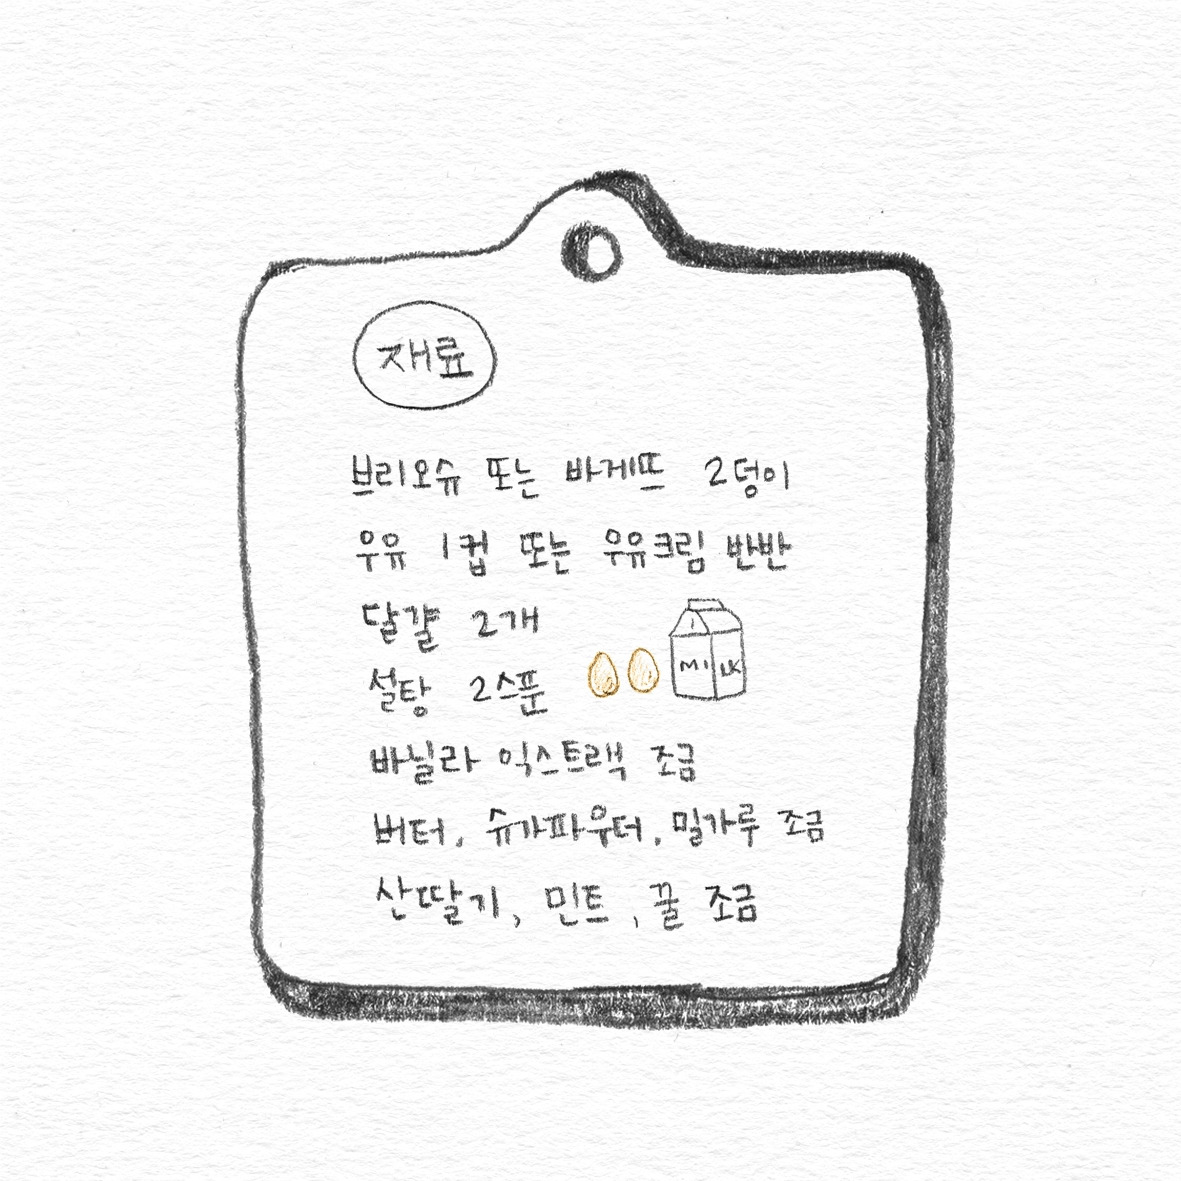 재료
브리오슈 또는 바게뜨 2덩이
우유 1컵 또는 우유크림 반반
달걀 2개
설탕 2스푼
MILK
바닐라 익스트랙 조금
버터, 슈가파우더, 밀가루 조금
산딸기, 민트, 꿀 조금